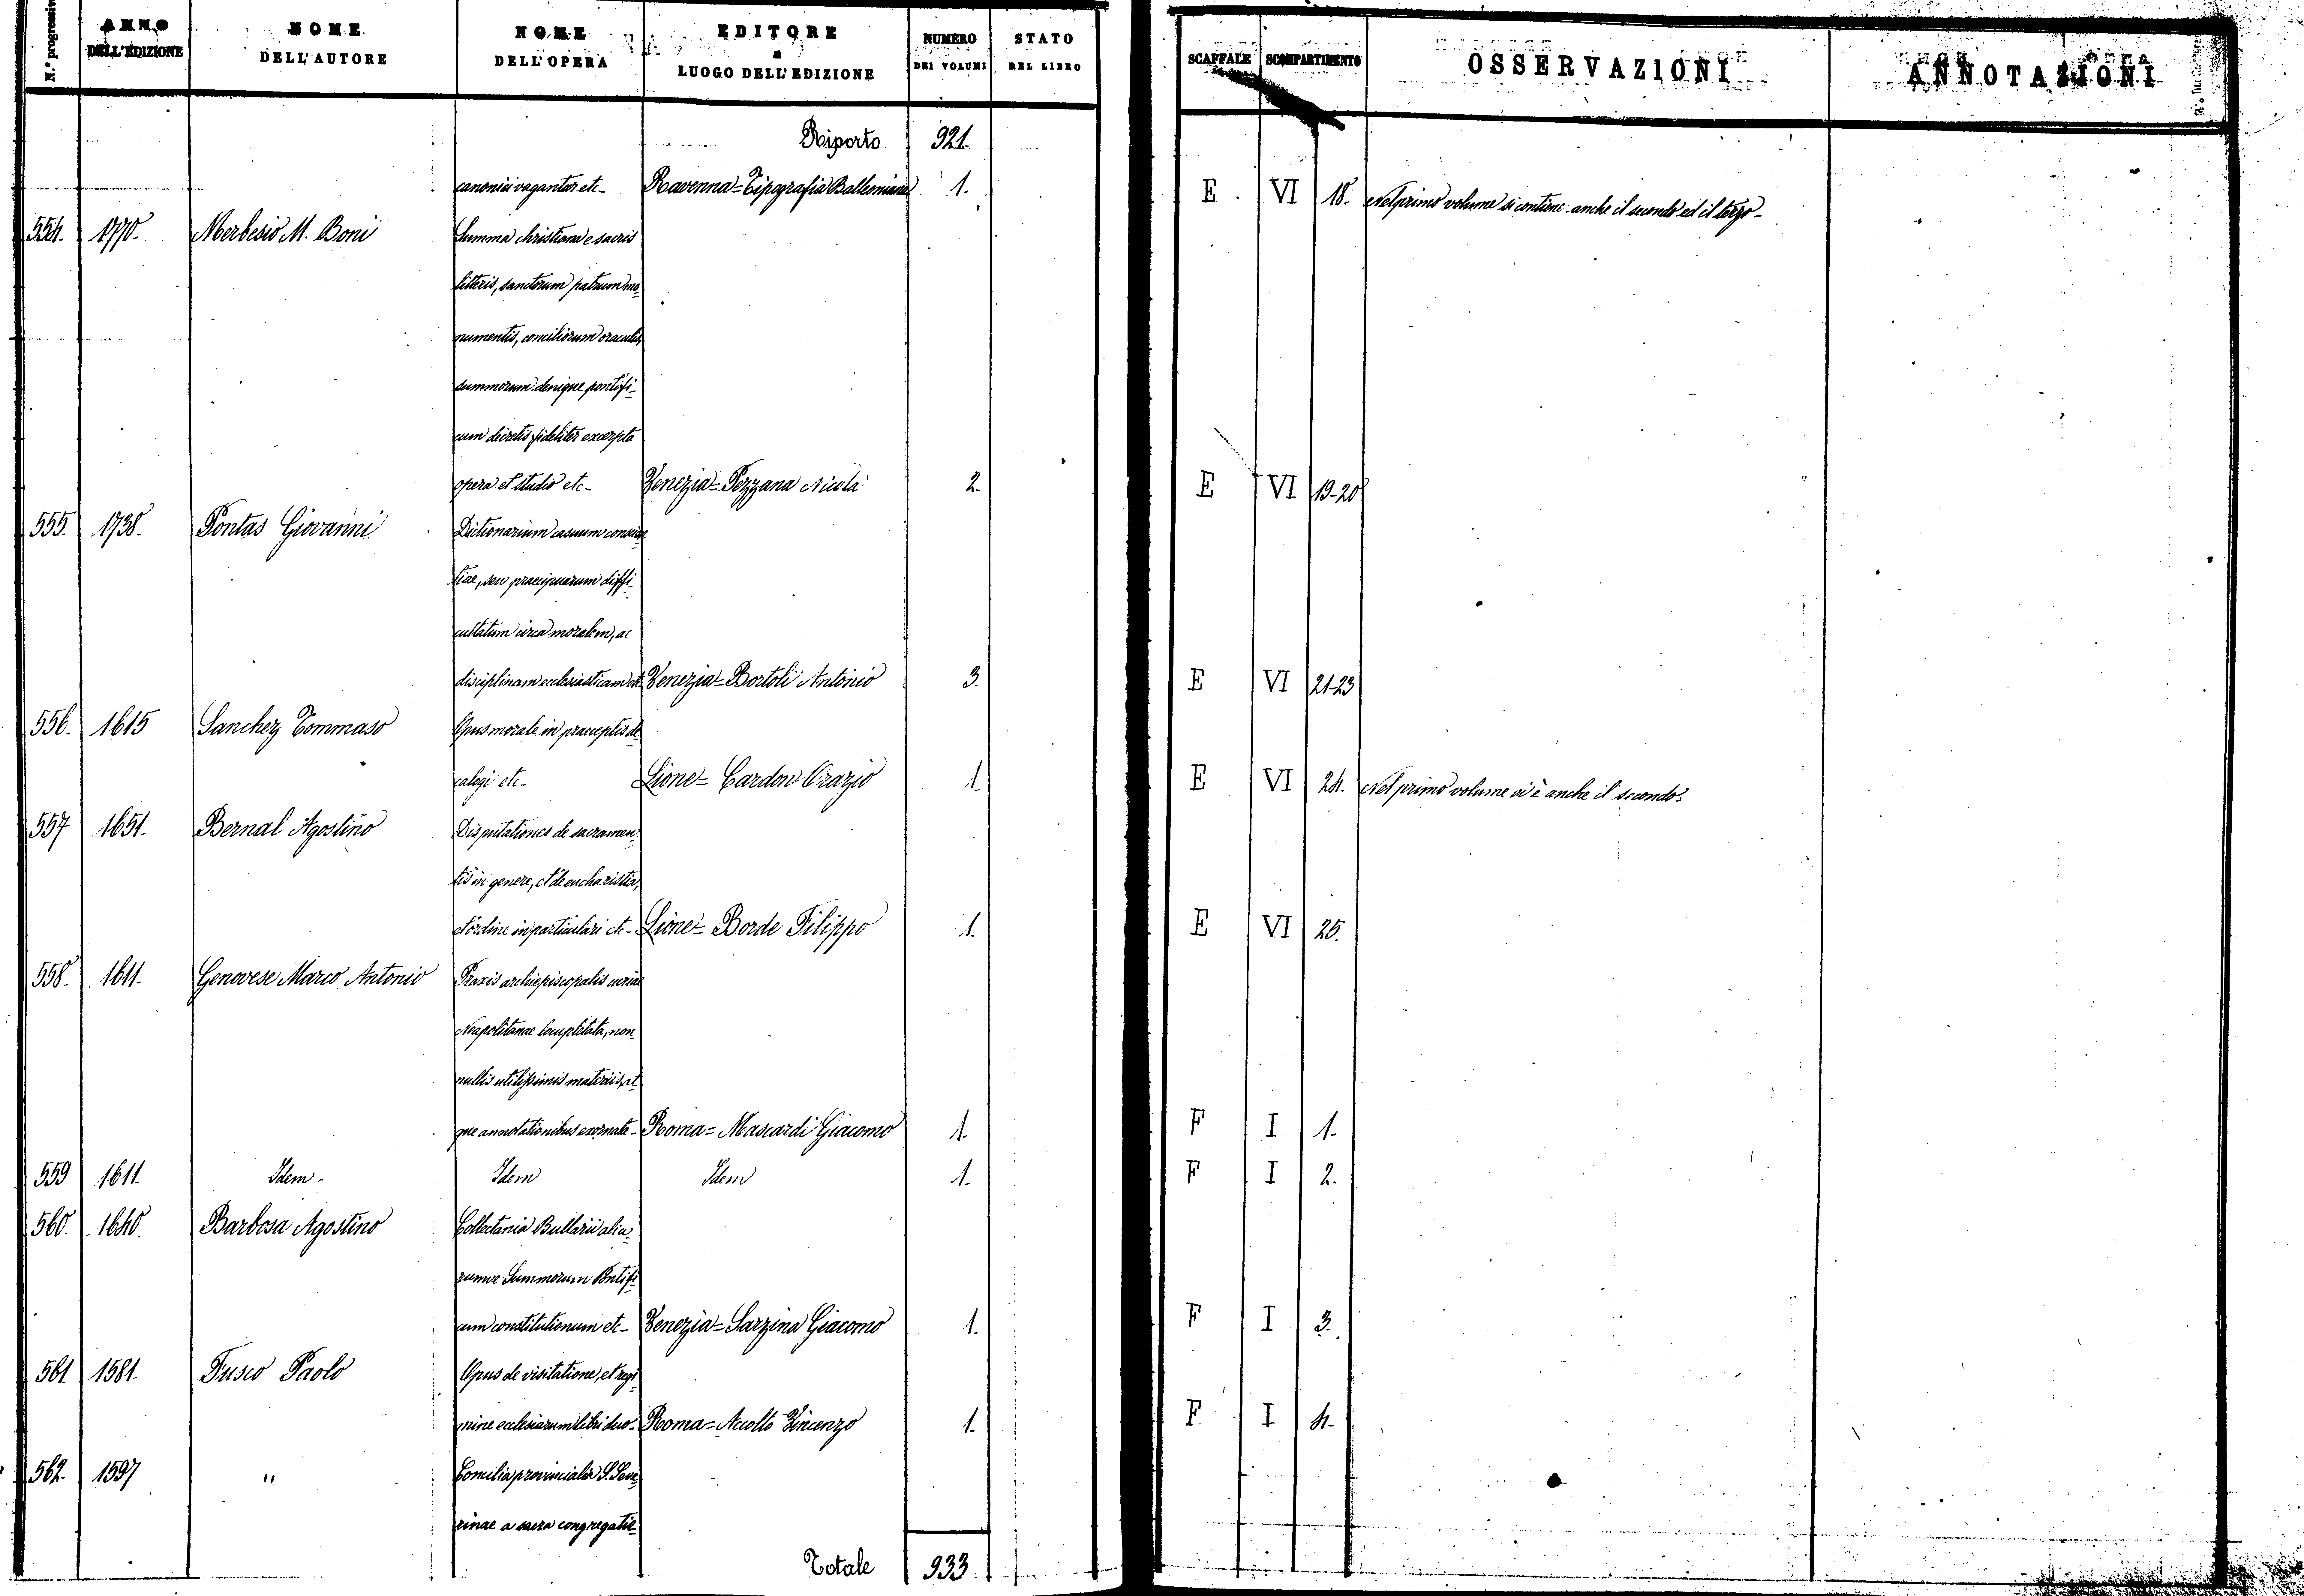 N.° progressivo | ANNO DELL'EDIZIONE | NOME DELL'AUTORE | NOME DELL'OPERA | EDITORE e LUOGO DELL'EDIZIONE | NUMERO DEI VOLUMI | STATO DEL LIBRO | SCAFFALE | SCOMPARTIMENTO | OSSERVAZIONI | ANNOTAZIONI
Riporto 921.
canonici vagantur etc- Ravenna= Tipografia 1. E VI 18. Nel primo volume si contiene anche il secondo ed il terzo-
554. 1770. Merbesio M. Boni Summa christiana e sacris
litteris, sanctorum patrum mo-
numentis, conciliorum oraculis,
summorum denique pontifi-
cum decretis fideliter excerpta
opera et studio etc- Venezia= Pezzana Nicola 2. E VI 19-20
555. 1738. Pontas Giovanni Dictionarium casuum conscien
tiae, seu praecipuarum diffi-
cultatum circa moralem, ac
disciplinam ecclesiasticam etc- Venezia= Bortoli Antonio 3. E VI 21-23
556. 1615 Sanchez Tommaso Opus morale in praeceptis de-
calogi etc- Lione= Cardon Orazio 1. E VI 24. Nel primo volume vi è anche il secondo-
557 1651. Bernal Agostino Disputationes de sacramen-
tis in genere, et de eucharistia,
et ordine in particulari etc- Lione= Borde Filippo 1. E VI 25.
558. 1611. Genovese Marco Antonio Praxis archiepiscopalis curiae
Neapolitanae locupletata, non-
nullis utilissimis materiis, at-
que annotationibus exornata- Roma= Mascardi Giacomo 1. F I 1.
559 1611. Idem. Idem Idem 1. F I 2.
560. 1640. Barbosa Agostino Collectania Bullarii alia-
rumve Summorum Pontifi-
cum constitutionum etc- Venezia= Sarzina Giacomo 1. F I 3.
561. 1581. Fusco Paolo Opus de visitatione, et regi-
mine ecclesiarum libri duo- Roma= Accolto Vincenzo 1. F I 4.
562. 1597 " Concilia provincialia S. Seve-
rinae a sacra congregatio-
Totale 933